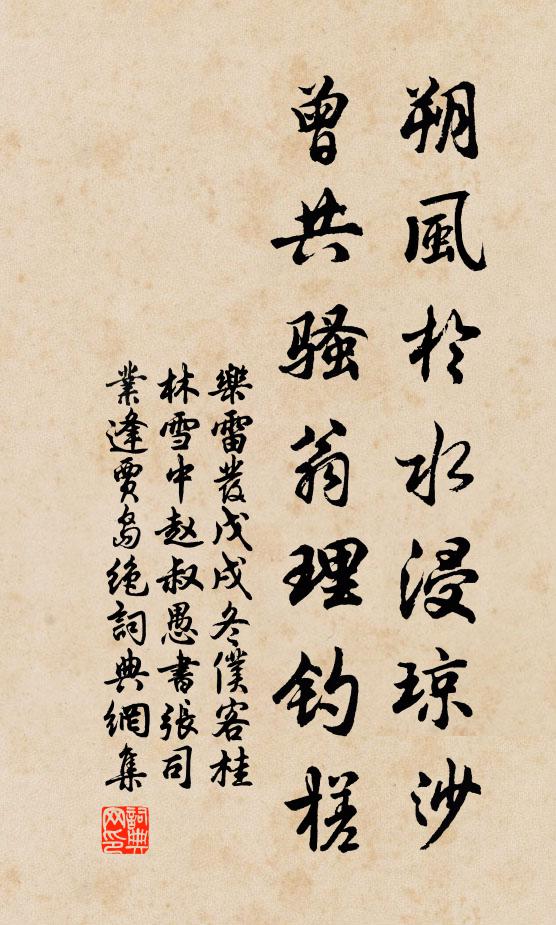 朔風扵水浸琼沙
曾共騷翁理釣槎
樂雷發戊戌冬僕客桂
林雪中赵叔愚書張司
業逢賈島絶詞典網集
詞典
网印